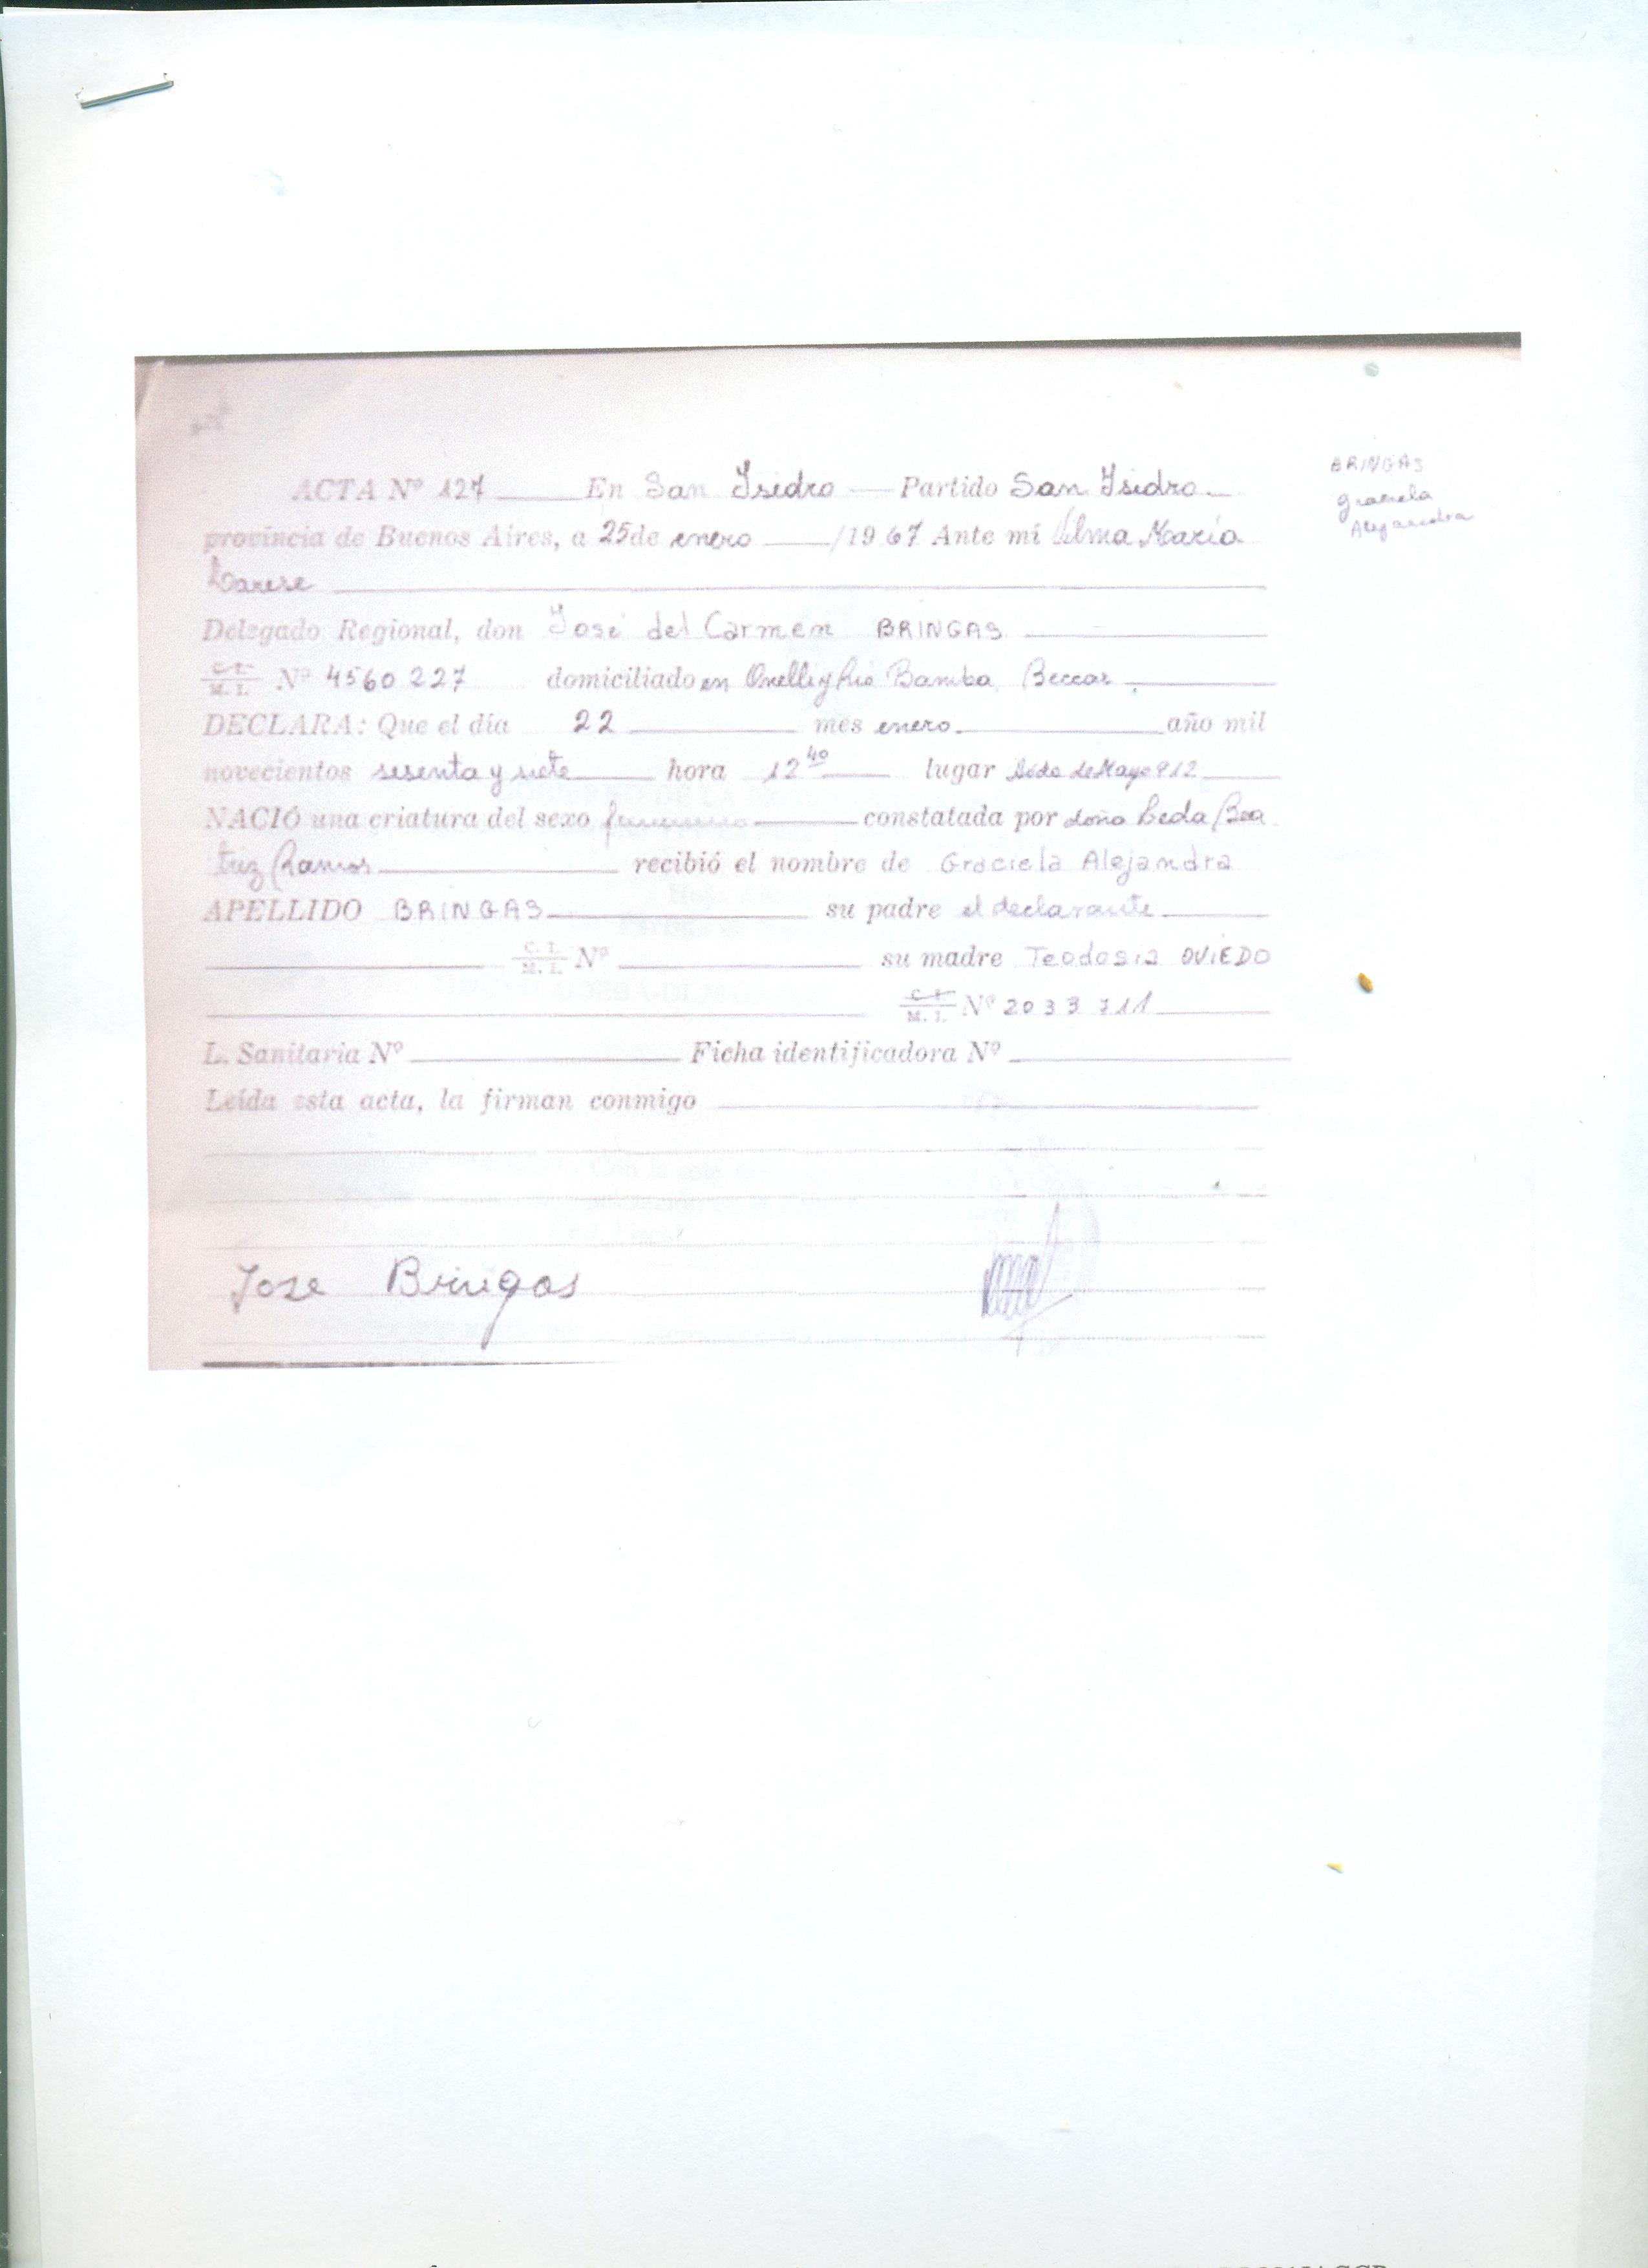 ACTA Nº 127 En San Isidro Partido San Isidro
BRINGAS
Graciela
Alejandra
provincia de Buenos Aires, a 25 de enero /1967 Ante mí Vilma María
Varese
Delegado Regional, don José del Carmen BRINGAS
C. I.
M. I. Nº 4560 227 domiciliado en Onelli y Río Bamba, Beccar
DECLARA: Que el día 22 mes enero año mil
novecientos sesenta y siete hora 12 40 lugar de Mayo 912
NACIÓ una criatura del sexo femenino constatada por doña Leda Bea
triz Ramos recibió el nombre de Graciela Alejandra
APELLIDO BRINGAS su padre el declarante
C. I.
M. I. Nº su madre Teodosia OVIEDO
C. I.
M. I. Nº 2033 711
L. Sanitaria Nº Ficha identificadora Nº
Leída esta acta, la firman conmigo
Jose Bringas